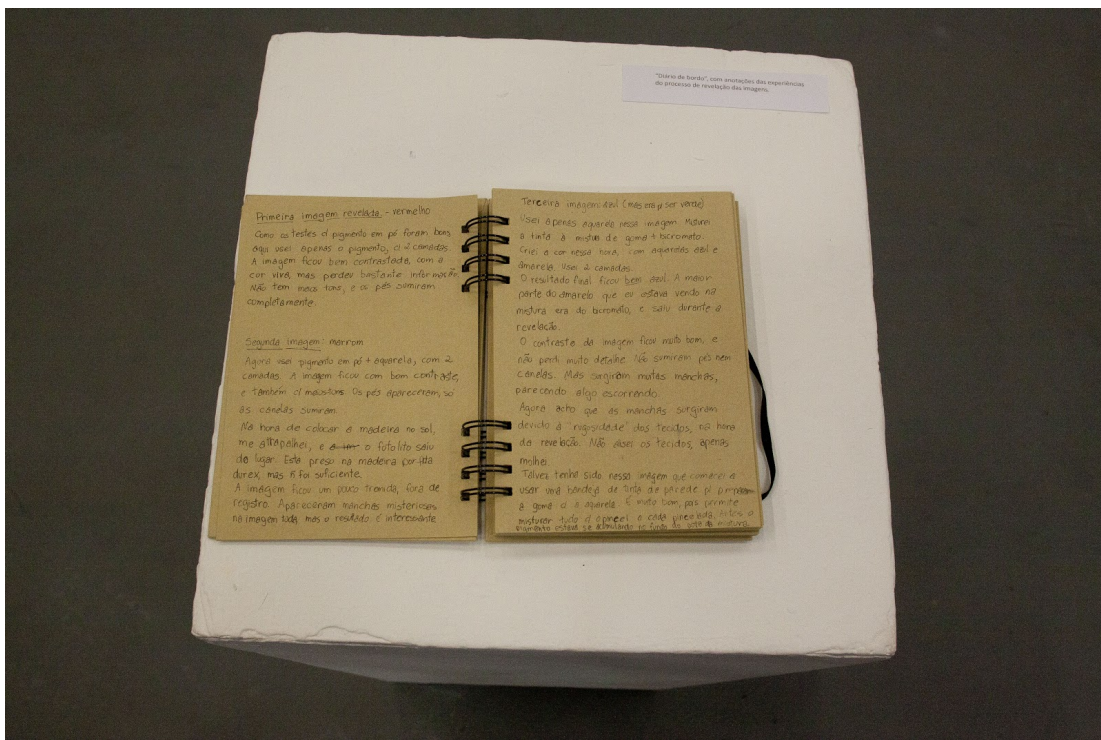 "Diário de bordo", com anotações das experiências
do processo de revelação das imagens.
Primeira imagem revelada - vermelho
Como os testes c/ pigmento em pó foram bons
aqui usei apenas o pigmento, c/ 2 camadas.
A imagem ficou bem contrastada, com a
cor viva, mas perdeu bastante informação.
Não tem meios tons, e os pés sumiram
completamente.
Segunda imagem: marrom
Agora usei pigmento em pó + aquarela, com 2
camadas. A imagem ficou com bom contraste,
e também c/ meios tons. Os pés apareceram, só
as canelas sumiram.
Na hora de colocar a madeira no sol,
me atrapalhei, e o fotolito saiu
do lugar. Estava preso na madeira por fita
durex, mas ñ foi suficiente.
A imagem ficou um pouco tremida, fora de
registro. Apareceram manchas misteriosas
na imagem toda, mas o resultado é interessante
Terceira imagem: Azul (mas era p/ ser verde)
Usei apenas aquarela nessa imagem. Misturei
a tinta à mistura de goma + bicromato.
Criei a cor nessa hora, com aquarelas azul e
amarela. Usei 2 camadas.
O resultado final ficou bem azul. A maior
parte do amarelo que eu estava vendo na
mistura era do bicromato, e saiu durante a
revelação.
O contraste da imagem ficou muito bom, e
não perdi muito detalhe. Não sumiram pés nem
canelas. Mas surgiram muitas manchas,
parecendo algo escorrendo.
Agora acho que as manchas surgiram
devido à "rugosidade" dos tecidos, na hora
da revelação. Não alisei os tecidos, apenas
molhei.
Talvez tenha sido nessa imagem que comecei a
usar uma bandeja de tinta de parede p/ preparar
a goma c/ a aquarela. É muito bom, pois permite
misturar tudo c/ o pincel a cada pincelada. Antes o
pigmento estava se acumulando no fundo do pote da mistura.